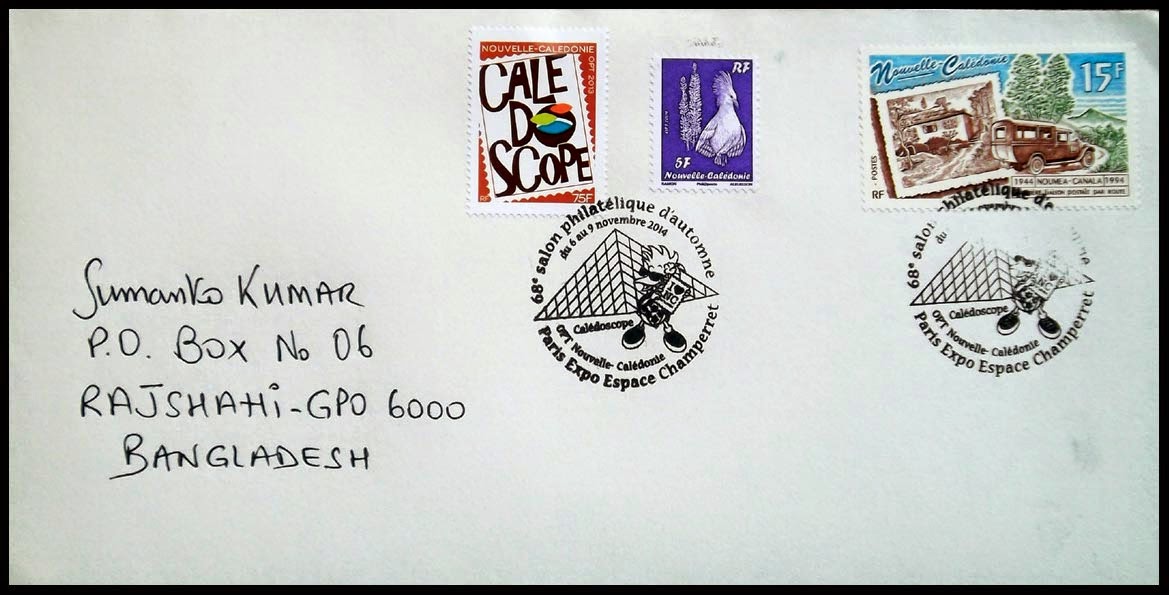 NOUVELLE-CALEDONIE
OPT 2013
CALE
DO
SCOPE
RF
75F
RF
5F
Nouvelle-Calédonie
Nouvelle-Calédonie
15F
POSTES
RF
1944 NOUMEA-CANALA 1994
LIAISON POSTALE PAR ROUTE
68e salon philatélique d'automne
du 6 au 9 novembre 2014
I ♥
NC
Calédoscope
OPT Nouvelle-Calédonie
Paris Expo Espace Champerret
68e salon philatélique d'
du
Calédoscope
OPT Nouvelle-Calédonie
Paris Expo Espace Champerret
Sumanko KUMAR
P.O. BOX No 06
RAJSHAHi-GPO 6000
BANGLADESH